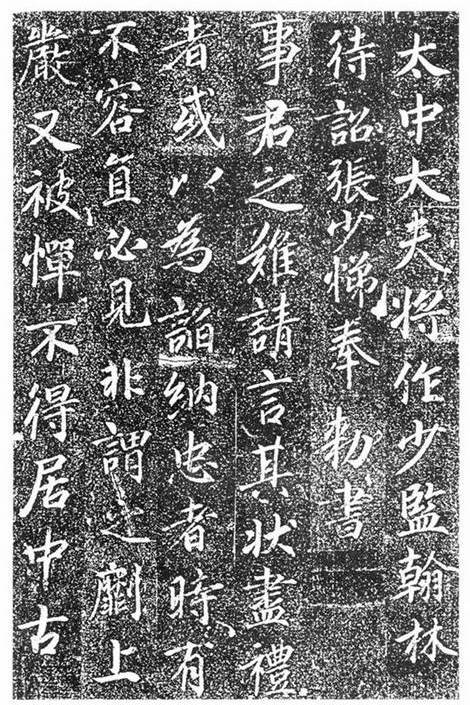 太中大夫將作少監翰林
待詔張少悌奉勅書
事君之難請言其狀盡禮
者或以為諂納忠者時有
不容直必見非謂之劘上
嚴又被憚不得居中古